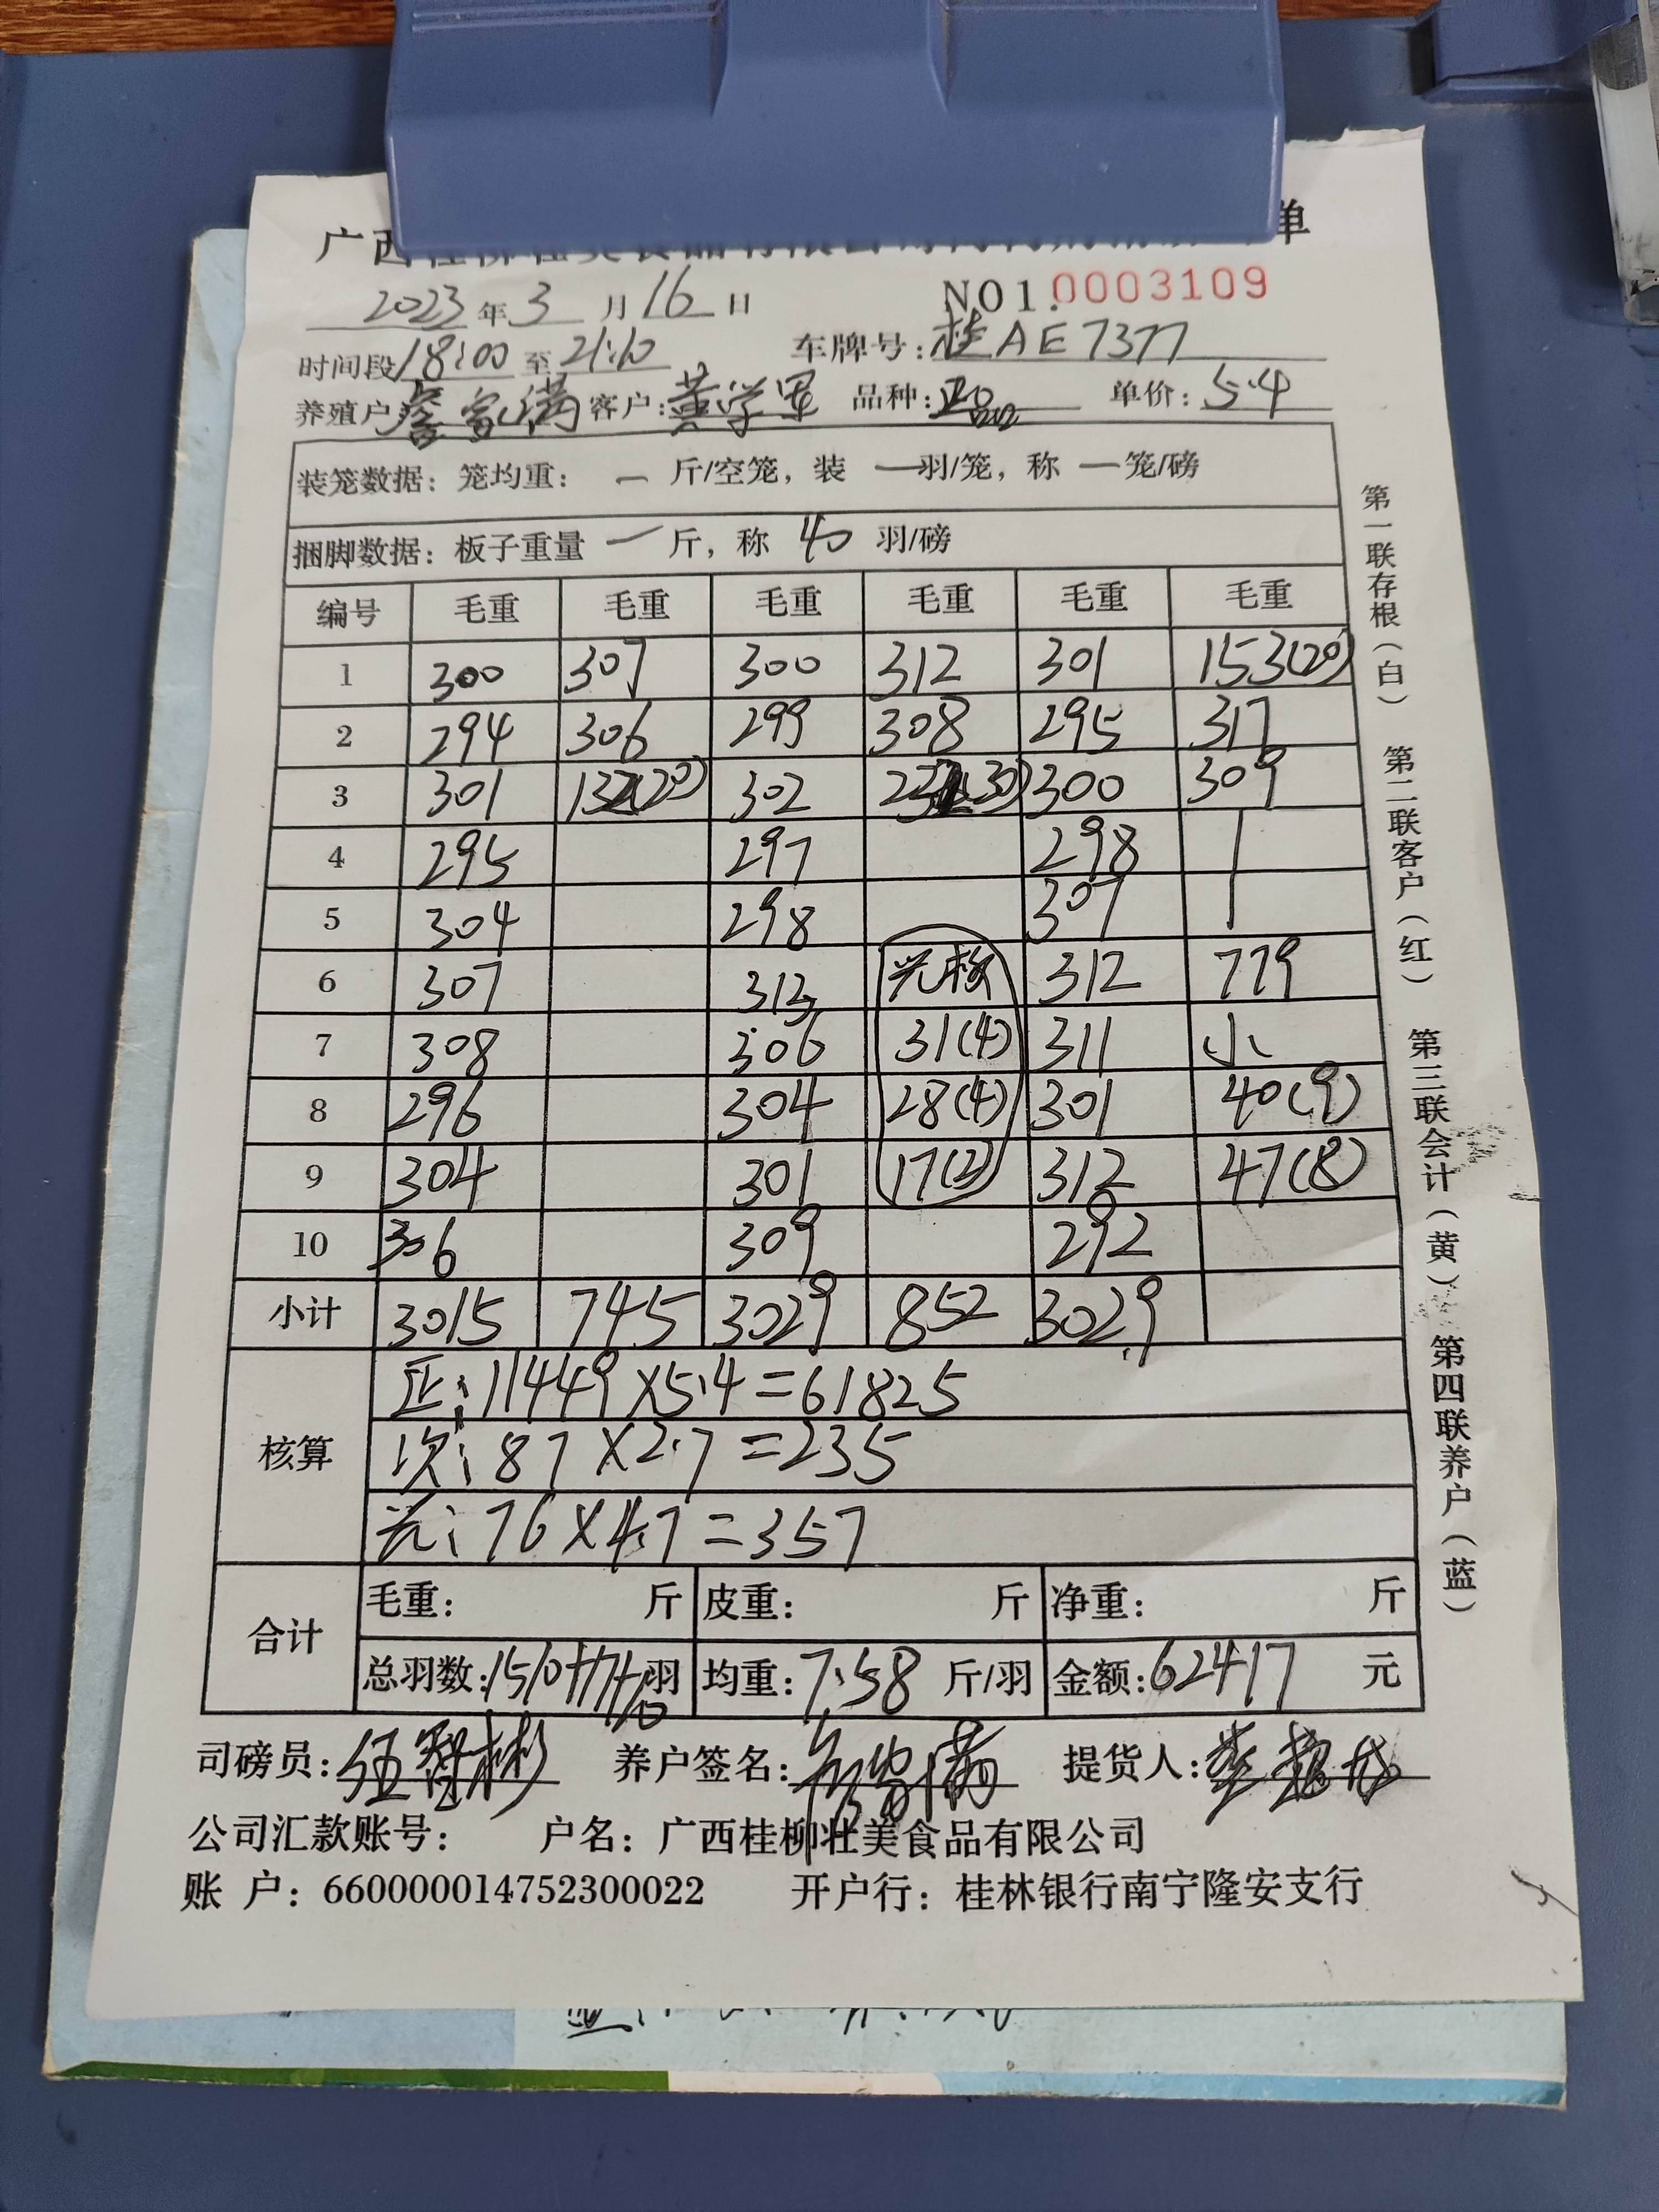 广西 单
2023年3月16日 NO1.0003109
时间段18:00至21:10 车牌号:桂AE7377
养殖户 富满 客户:黄学军 品种: 单价:5.4
装笼数据: 笼均重: 一 斤/空笼, 装 一羽/笼, 称 一笼/磅
捆脚数据: 板子重量 一 斤, 称 40 羽/磅
编号 毛重 毛重 毛重 毛重 毛重 毛重
1 300 307 300 312 301 153(20)
2 294 306 299 308 295 317
3 301 132(20) 302 (30) 300 309
4 295 297 298
5 304 298 307
6 307 313 312 779
7 308 306 31(4) 311 小
8 296 304 28(4) 301 40(9)
9 304 301 17(2) 312 47(8)
10 306 309 292
小计 3015 745 3029 852 3029
核算
正:11449×5.4=61825
次:87×2.7=235
光:76×4.7=357
合计
毛重: 斤 皮重: 斤 净重: 斤
总羽数:1510+17+10羽 均重:7.58 斤/羽 金额:62417 元
司磅员:伍智彬 养户签名: 提货人:
公司汇款账号: 户名: 广西桂柳壮美食品有限公司
账 户: 660000014752300022 开户行: 桂林银行南宁隆安支行
第一联存根(白) 第二联客户(红) 第三联会计(黄) 第四联养户(蓝)